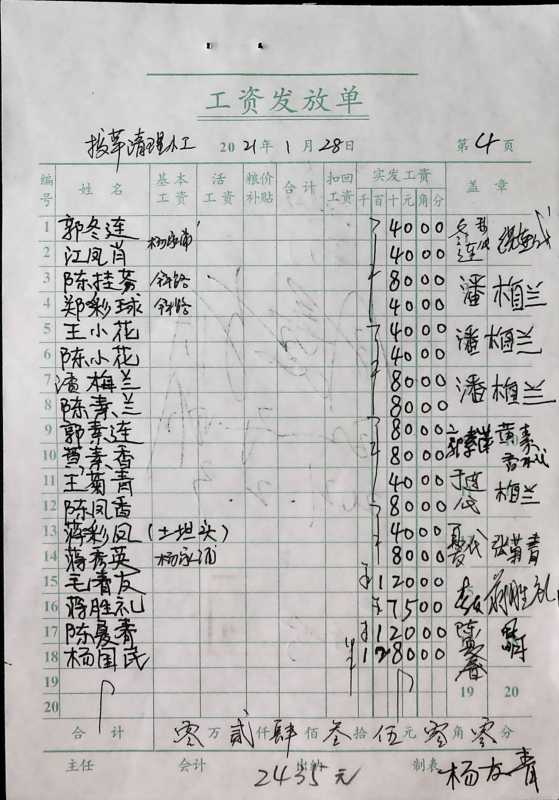 工资发放单
拔草清理人工 2021年1月28日 第4页
编号 姓名 基本工资 活工资 粮价补贴 合计 扣回工资 实发工资 千百十元角分 盖章
1 郭冬连 4000
2 江凤肖 4000
3 陈桂芬 8000 潘梅兰
4 郑彩球 4000
5 王小花 4000 潘梅兰
6 陈小花 4000
7 潘梅兰 8000 潘梅兰
8 陈素兰 8000
9 郭素连 8000
10 黄素香 8000
11 王菊青 4000 梅兰
12 陈凤香 8000
13 蒋彩凤 (土坦头) 4000 张菊青
14 蒋秀英 8000
15 毛青友 12000
16 蒋胜礼 7500 蒋胜礼
17 陈夏春 12000
18 杨国民 128000
19 19 20
20
合计 零万贰仟肆佰叁拾伍元零角零分
主任 会计 出纳 制表 杨友青
2435元